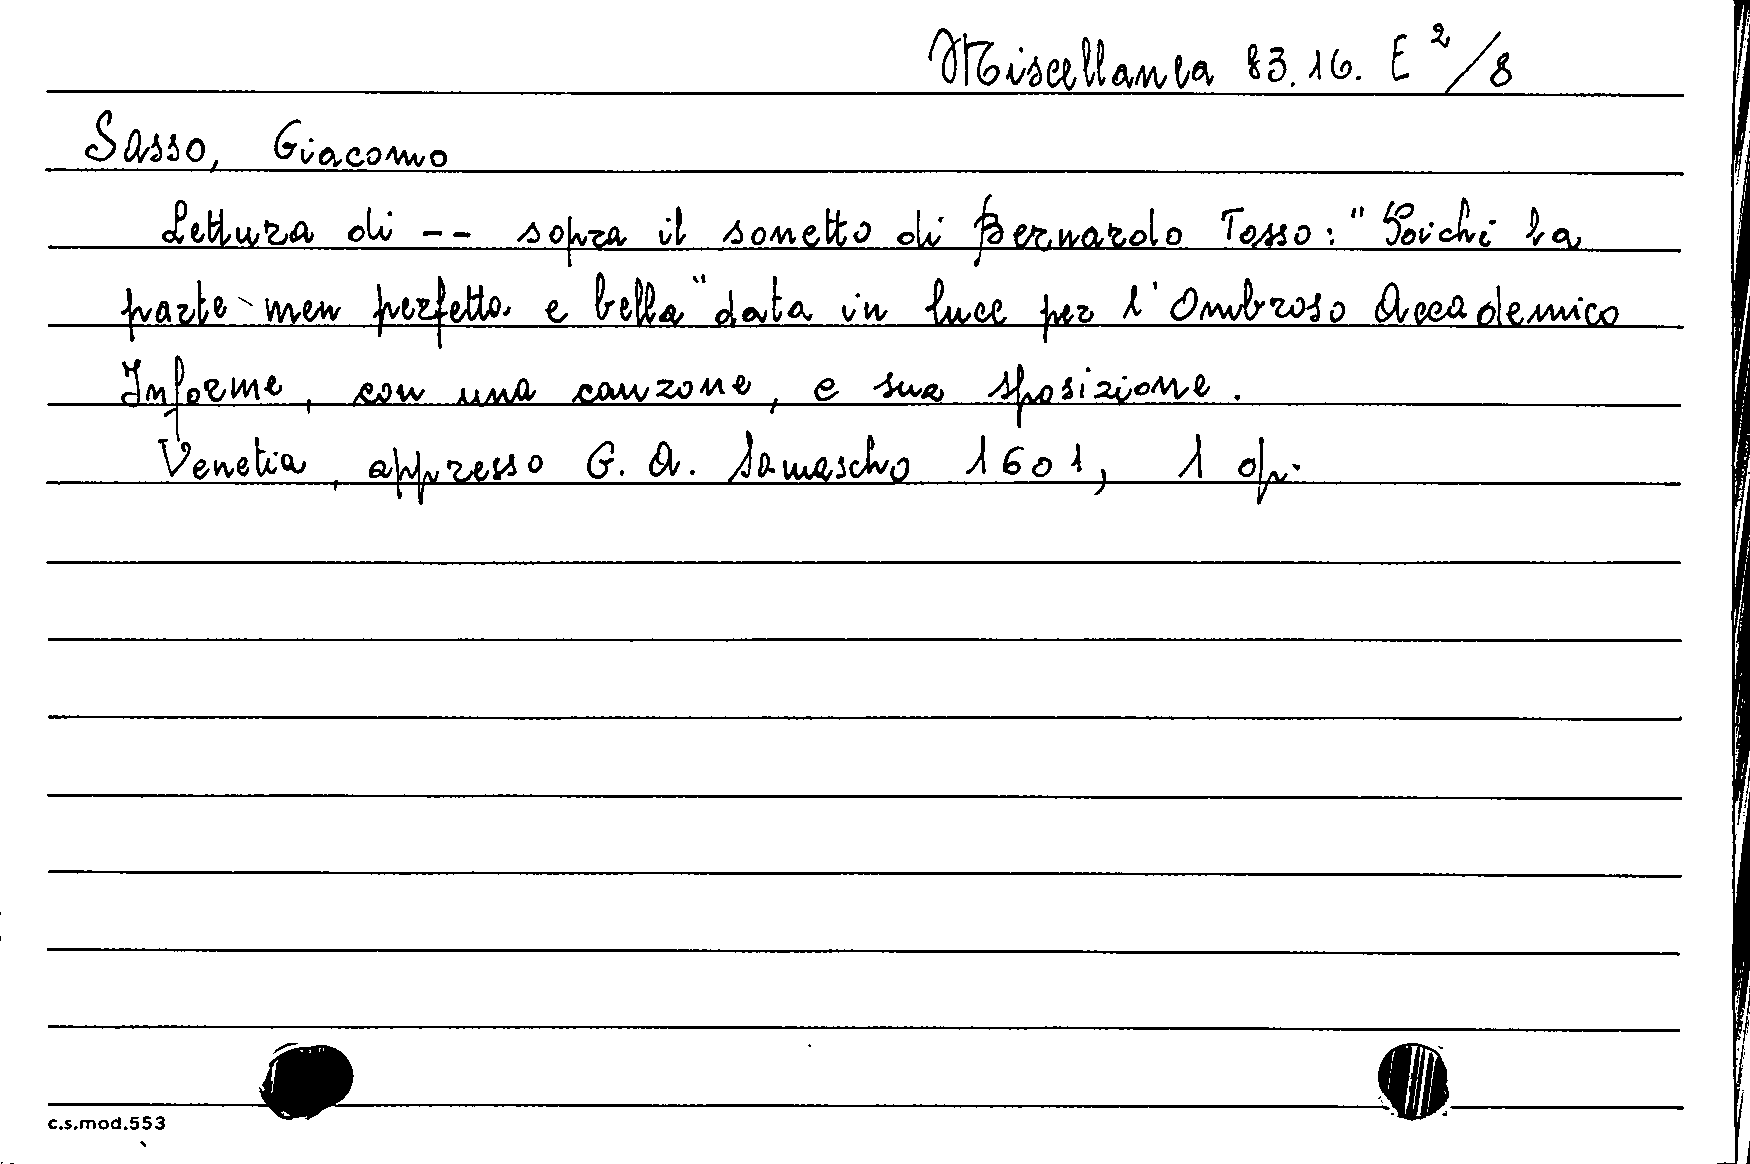 Miscellanea 83.16. E²/8
Sasso, Giacomo
Lettura di -- sopra il sonetto di Bernardo Tasso: "Poichè la
parte men perfetta e bella" data in luce per l'Ombroso Accademico
Informe, con una canzone, e sua sposizione.
Venetia, appresso G. A. Samascho 1601, 1 op.
c.s.mod.553